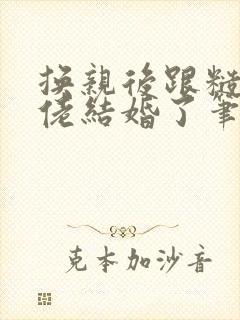 換親後跟糙
佬結婚了筆
克本加沙音